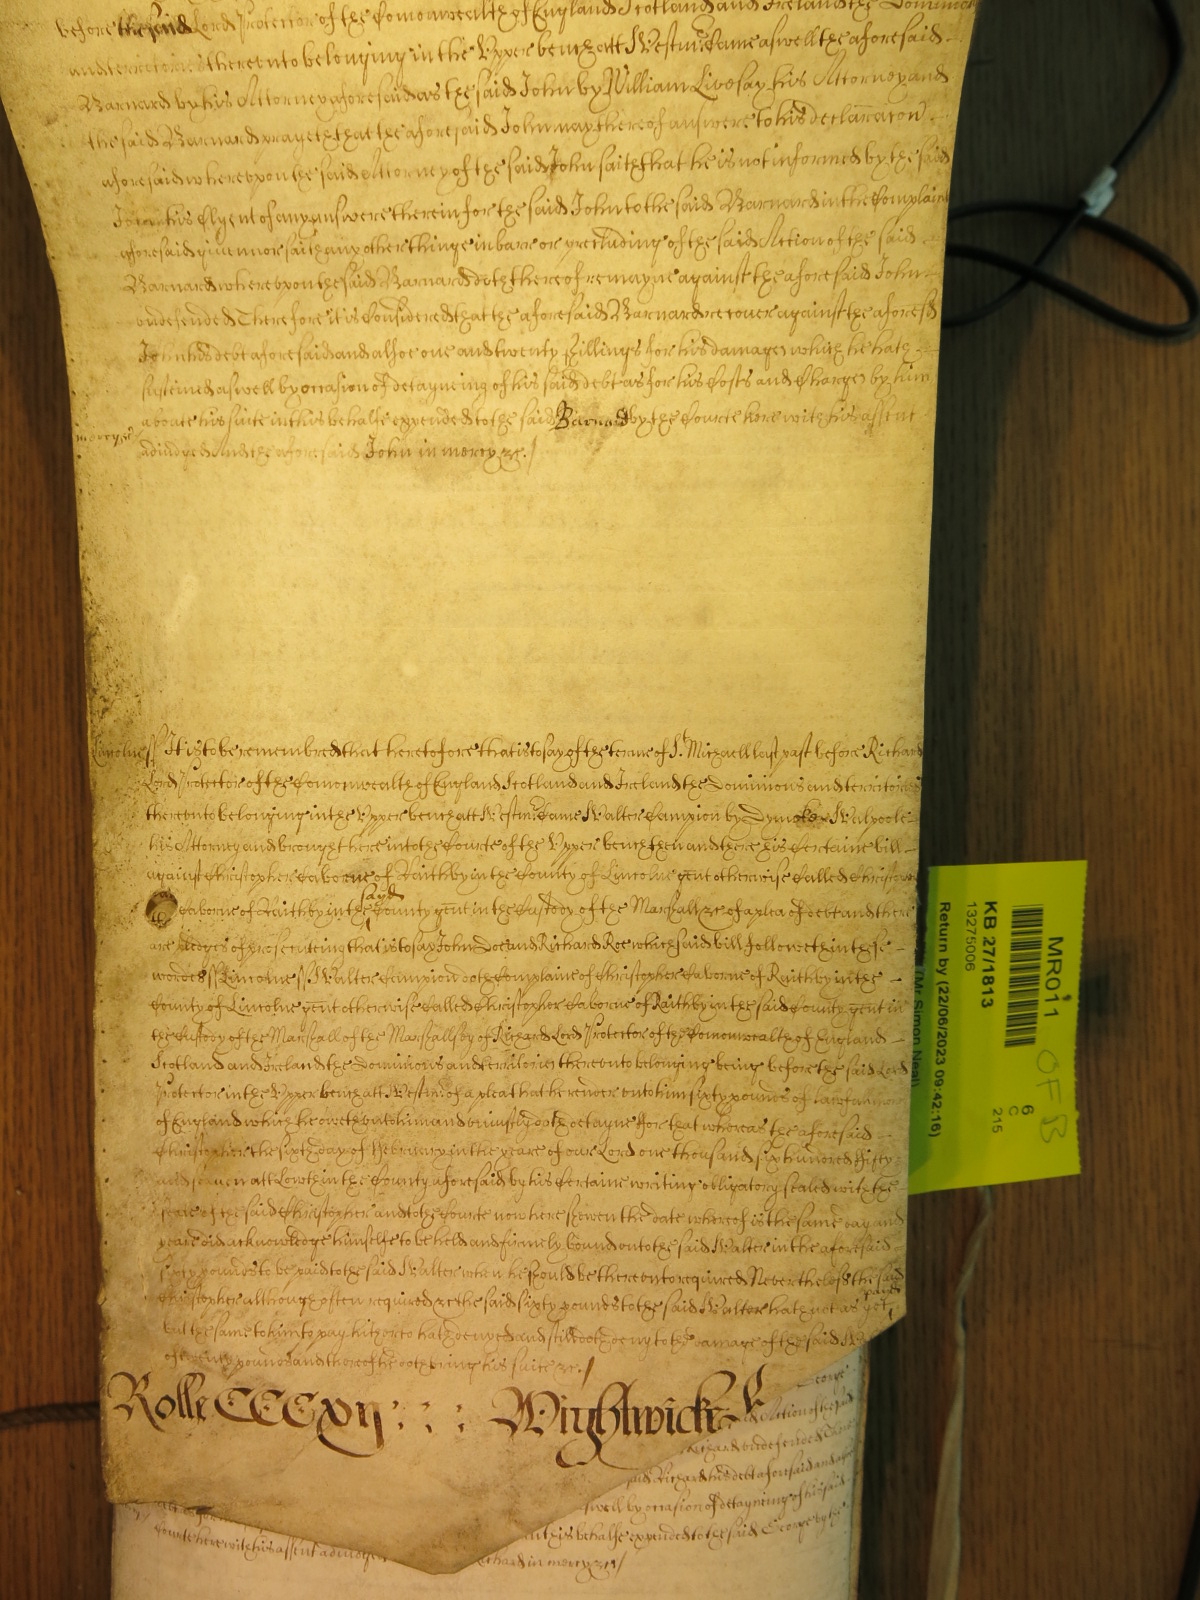 before the said Lord Protector of the Comonwealth of England Scotland and Ireland the Dominions
and territories thereonto belonging in the Upper bench att Westmr Came aswell the aforesaid
Barnard by his Attorney aforesaid as the said John by William Livesay his Attorney and
the said Barnard prayeth that the aforesaid John may thereof answere to his declaracon
aforesaid whereupon the said Attorney of the said John saith that he is not informed by the said
John his Clyent of any answere therein for the said John to the said Barnard in the Complaint
aforesaid give nor saith any other thinge in barr or precluding of the said Action of the said
Barnard whereupon the said Barnard doth thereof remayne against the aforesaid John
undefended Therefore it is Considered that the aforesaid Barnard recover against the aforesd
John his debt aforesaid and alsoe one and twenty shillings for his damages which he hath
susteined aswell by occasion of detayneing of his said debt as for his Costs and Charges by him
aboute his suite in this behalfe expended to the said Barnard by the Courte here with his assent
mercye
adiudged And the aforesaid John in mercy &c.
Lincolne ss It is to be remembred that heretofore that is to say of the terme of St. Michaell last past before Richard
Lord Protector of the Comonwealth of England Scotland and Ireland the Dominions and territories
thereonto belonging in the Upper bench att Westmr Came Walter Campion by Dymoke Walpoole
his Attorney and brought here into the Courte of the Upper bench then and there his Certaine bill
against Christopher Caborne of Raithby in the County of Lincolne gent otherwise Called Christopher
Caborne of Raithby in the sayd County gent in the Custody of the Marshall &c of a plea of debt and there
are pledges of prosecuteing that is to say John Doe and Richard Roe which said bill followeth in these
wordes ss Lincolne ss Walter Campion doth Complaine of Christopher Caborne of Raithby in the
County of Lincolne gent otherwise Called Christopher Caborne of Raithby in the said County gent in
the Custody of the Marshall of the Marshallsey of Richard Lord Protector of the Comonwealth of England
Scotland and Ireland the Dominions and territories thereonto belonging being before the said Lord
Protector in the Upper bench att Westmr of a plea that he render onto him sixty pounds of lawfull mony
of England which he oweth unto him and uniustly doth detayne For that whereas the aforesaid
Christopher the sixth day of February in the yeare of our Lord one thousand six hundred fifty
and seaven att Lowth in the County aforesaid by his Certaine writing obligatory sealed with the
seale of the said Christopher and to the Courte now here shewen the date whereof is the same day and
yeare did acknowledge himselfe to be held and firmely bound onto the said Walter in the aforesaid
sixty pounds to be paid to the said Walter when he should be thereonto required Neverthelesse the said
Christopher although often required &c the said sixty pounds to the said Walter hath not as yet payed
but the same to him to pay hitherto hath denyed and still doth deny to the damage of the said
of twenty pounds and thereof he doth bring his suite &c.
Rolle CCCxij : : : Wightwicke
George
Action of the said
Richard undefended
said Richard his debt aforesaid and
aswell by occasion of detayneing of his said
in this behalfe expended to the said George by the
Courte here with his assent adiudged
Richard in mercy &c
MR011
OFB
KB 27/1813
13275006
6
C
215
(Mr Simon Neal)
Return by (22/06/2023 09:42:16)